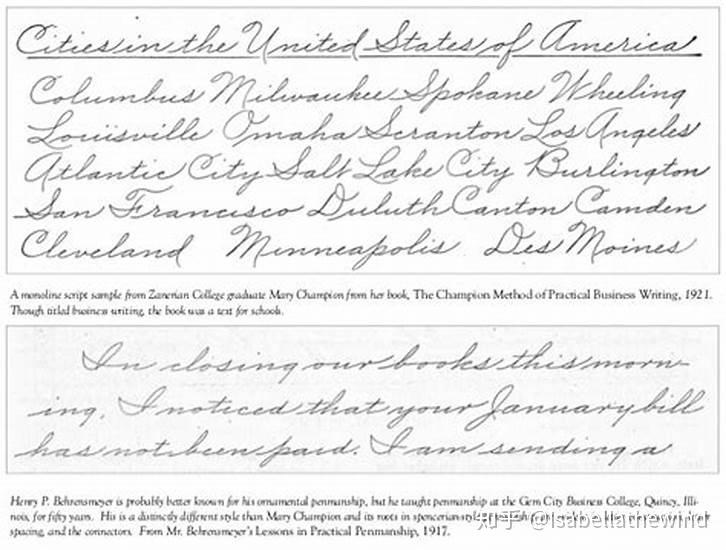 Cities in the United States of America
Columbus Milwaukee Spokane Wheeling
Louisville Omaha Scranton Los Angeles
Atlantic City Salt Lake City Burlington
San Francisco Duluth Canton Camden
Cleveland Minneapolis Des Moines
A monoline script sample from Zanerian College graduate Mary Champion from her book, The Champion Method of Practical Business Writing, 1921.
Though titled business writing, the book was a text for schools.
In closing our books this morn-
ing, I noticed that your January bill
has not been paid. I am sending a
Henry P. Behrensmeyer is probably better known for his ornamental penmanship, but he taught penmanship at the Gem City Business College, Quincy, Illi-
nois, for fifty years. His is a distinctly different style than Mary Champion and its roots in spencerian style
spacing, and the connectors. From Mr. Behrensmeyer's Lessons in Practical Penmanship, 1917.
知乎 @Isabellathewind